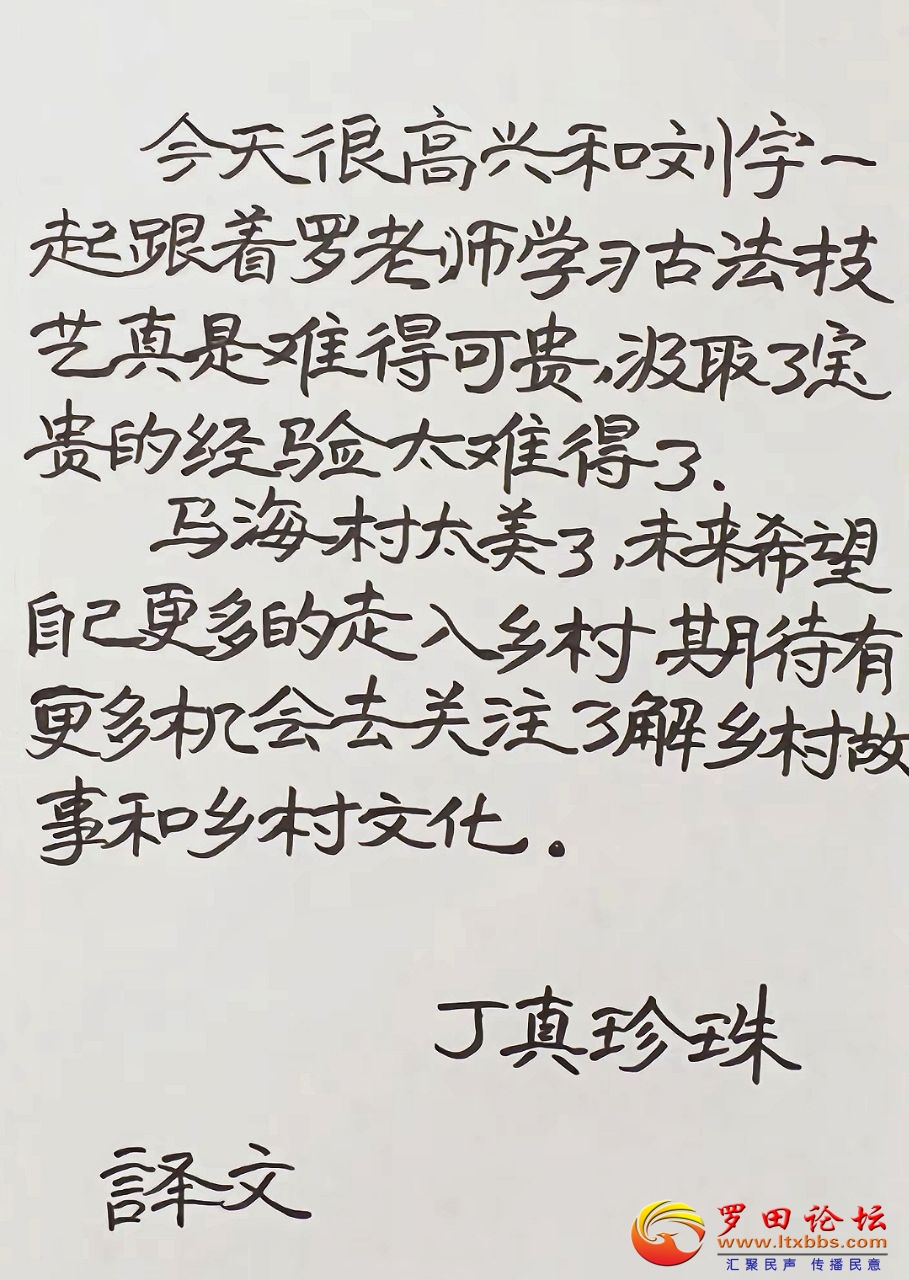 今天很高兴和刘宇一
起跟着罗老师学习古法技
艺真是难得可贵,汲取了宝
贵的经验太难得了.
马海村太美了,未来希望
自己更多的走入乡村,期待有
更多机会去关注了解乡村故
事和乡村文化.
丁真珍珠
譯文
罗田论坛
www.ltxbbs.com
汇聚民声 传播民意